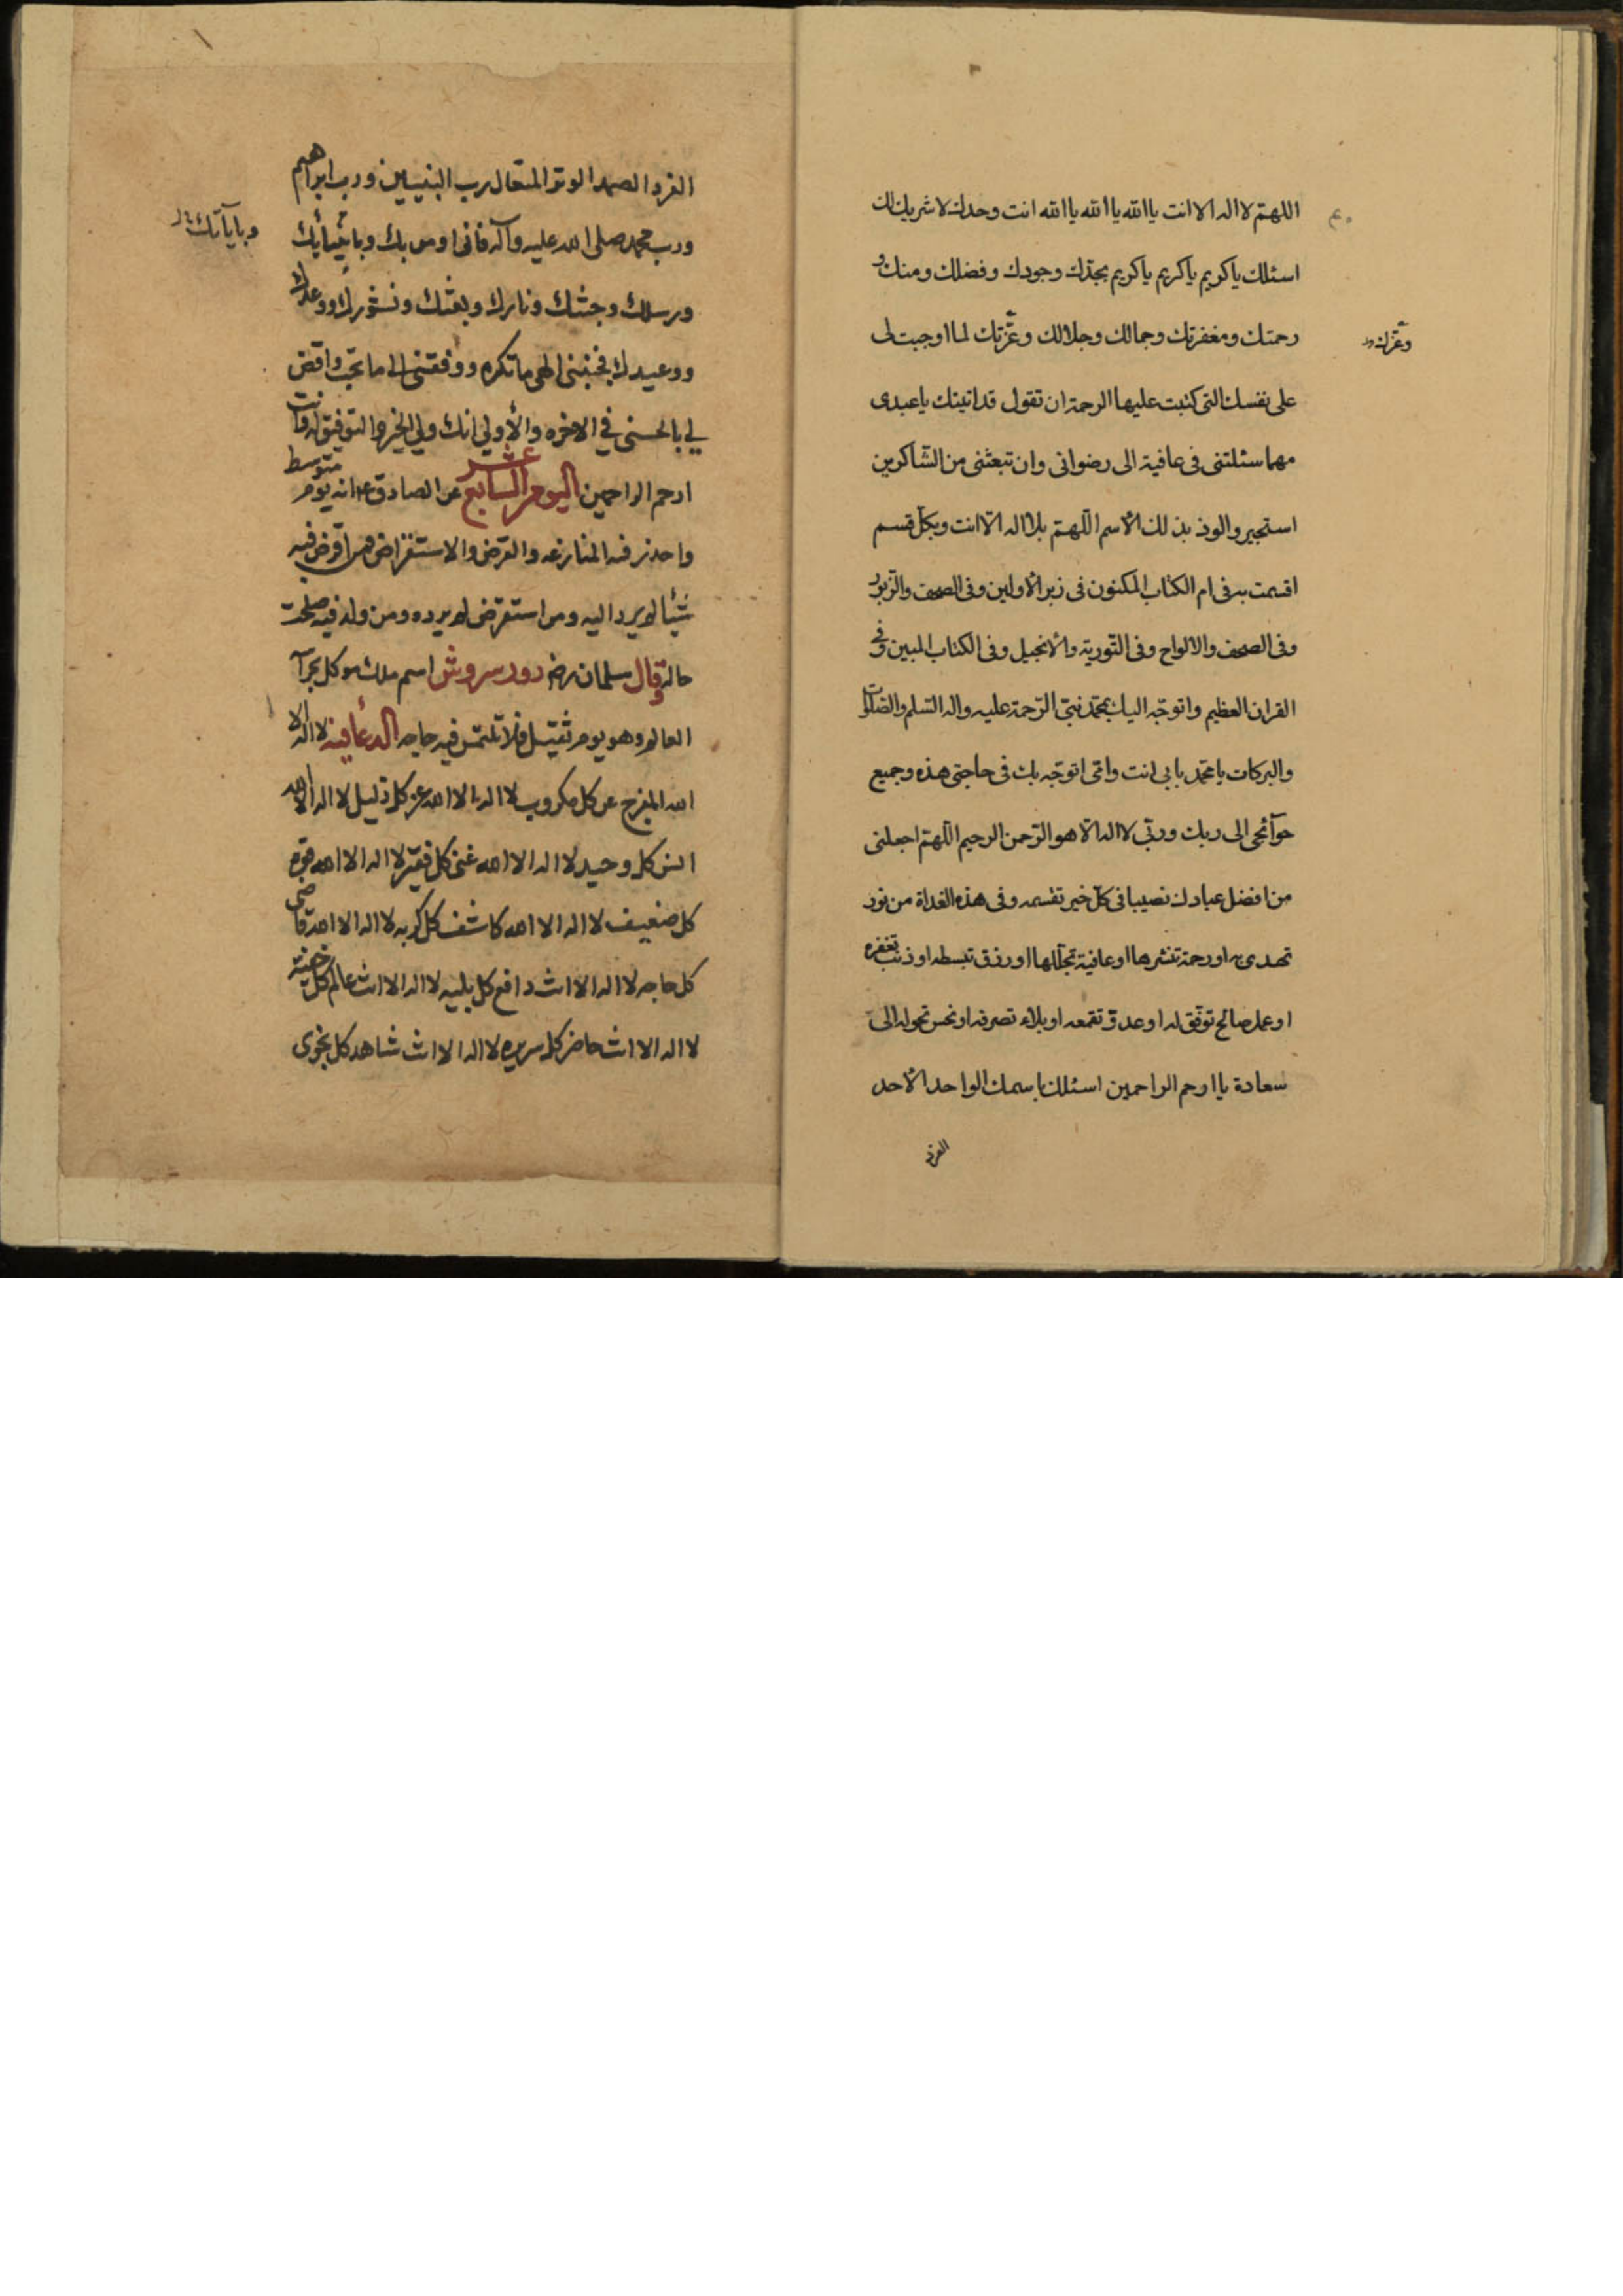 اللهم لا اله الا انت يا الله يا الله يا الله انت وحدك لا شريك لك
اسئلك يا كريم يا كريم يا كريم بمجدك وجودك وفضلك ومنك و
رحمتك ومغفرتك وجمالك وجلالك وعزتك لما اوجبت لى
وعزك
على نفسك التى كتبت عليها الرحمة ان تقول قد اتيتك يا عبدى
مهما سئلتنى فى عافية الى رضوانى وان تبعثنى من الشاكرين
استجير والوذ بذلك الاسم اللهم بلا اله الا انت وبكل قسم
اقسمت به فى ام الكتاب المكنون فى زبر الاولين وفى الصحف والزبور
وفى الصحف والالواح وفى التورية والانجيل وفى الكتاب المبين وفى
القران العظيم واتوجه اليك بمحمد نبى الرحمة عليه واله السلم والصلوات
والبركات يا محمد بابى انت وامى اتوجه بك فى حاجتى هذه وجميع
حوآئجى الى ربك وربى لا اله الا هو الرحمن الرحيم اللهم اجعلنى
من افضل عبادك نصيبا فى كل خير تقسمه وفى هذه الغداة من نور
تهدى به او رحمة تنشرها او عافية تجللها او رزق تبسطه او ذنب تغفره
او عمل صالح توفق له او عدو تقمعه او بلاء تصرفه او نحس تحوله الى
سعادة يا ارحم الراحمين اسئلك باسمك الواحد الاحد
الفرد
الفرد الصمد الوتر المتعال رب النبيين ورب ابراهيم
ورب محمد صلى الله عليه وآله فانى اومن بك وبانبيائك
وباياتك
ورسلك وجنتك ونارك وبعثك ونشورك ووعدك
ووعيدك فجنبنى الهى ما تكره ووفقنى الى ما تحب واقض
لي بالحسنى في الاخره والأولي انك ولي الخير والتوفيق له وانت
ارحم الراحمين اليوم السابع عشر عن الصادق ع انه يوم متوسط
واحذر فيه المنازعه والقرض والاستقراض فمن اقرض فيه
شيئا لم يرد اليه ومن استقرض لم يرده ومن ولد فيه صلحت
حاله وقال سلمان رض روز سروش اسم ملك موكل بحرآ
العالم وهو يوم ثقيل فلا تلتمس فيه حاجه الدعا فيه لا اله الا
الله المفرج عن كل مكروب لا اله الا الله عز كل ذليل لا اله الا الله
انس كل وحيد لا اله الا الله غنى كل فقير لا اله الا الله قوة
كل ضعيف لا اله الا الله كاشف كل كربه لا اله الا الله قاضى
كل حاجه لا اله الا انت دافع كل بليه لا اله الا انت عالم كل خفية
لا اله الا انت حاضر كل سريره لا اله الا انت شاهد كل نجوى